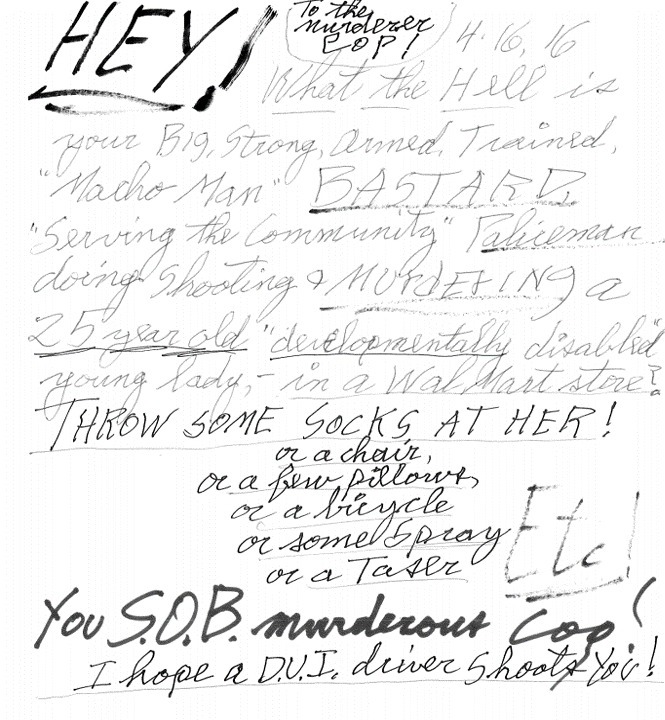 HEY!
To the
murderer
COP!
4.16,16
What the Hell is
your Big, Strong, Armed, Trained,
"Macho Man" BASTARD,
"Serving the Community" Policeman
doing Shooting & MURDERING a
25 year old "developmentally disabled"
young lady,- in a Wal Mart store?
THROW SOME SOCKS AT HER!
or a chair,
or a few pillows,
or a bicycle
or some Spray
or a Taser
Etc!
You S.O.B. murderous Cop!
I hope a D.U.I. driver Shoots You!